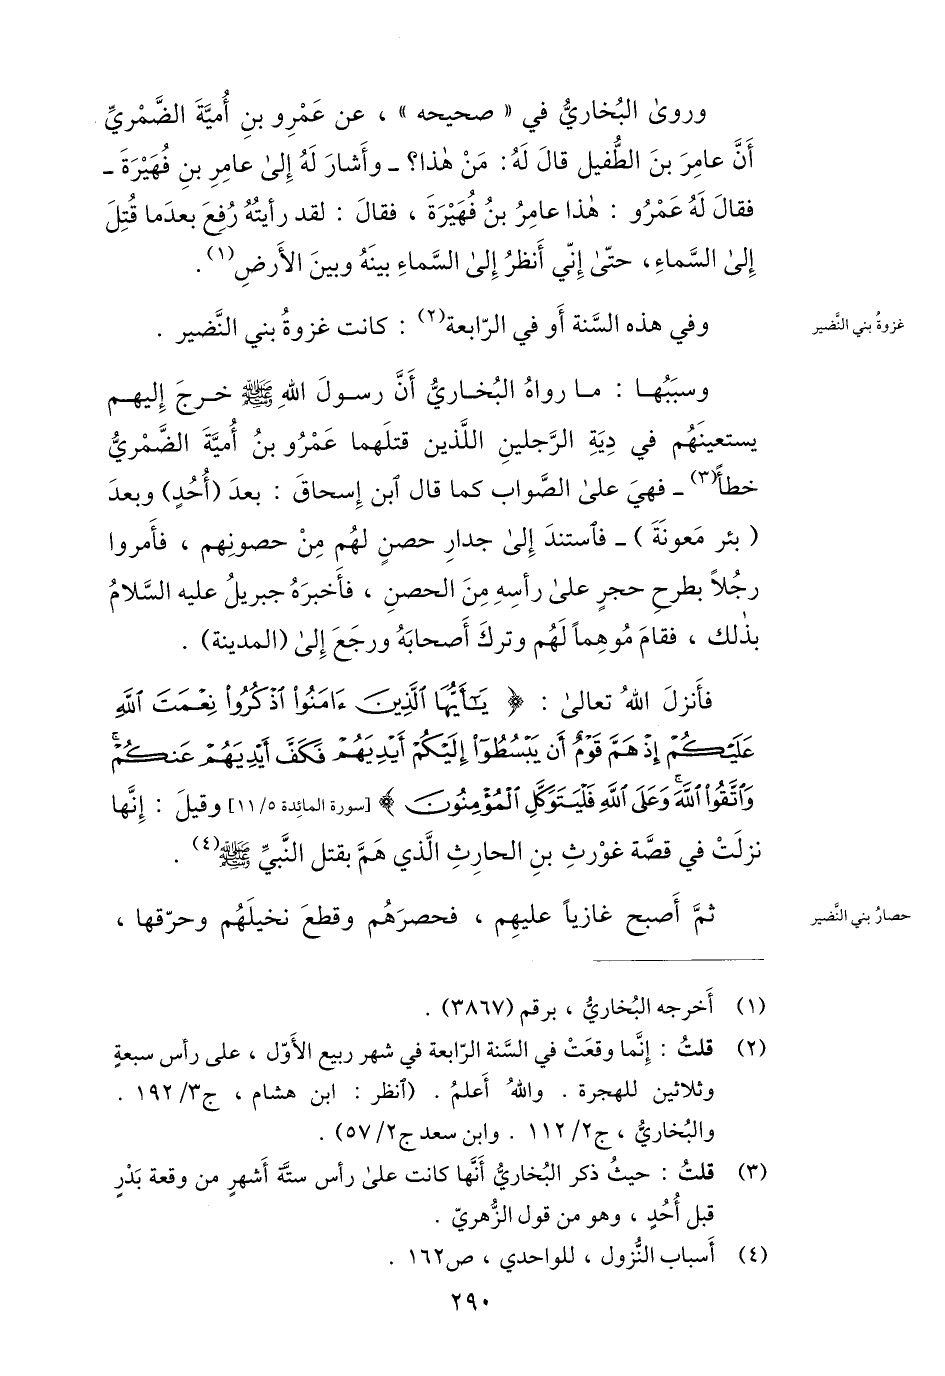 وروىٰ البُخاريُّ في « صحيحه » ، عن عَمْرِو بنِ أُميَّةَ الضَّمْريِّ
أَنَّ عامِرَ بنَ الطُّفيل قالَ لَهُ: مَنْ هٰذا؟ ـ وأَشارَ لَهُ إِلىٰ عامِرِ بنِ فُهَيْرَةَ ـ
فقالَ لَهُ عَمْرُو : هٰذا عامِرُ بنُ فُهَيْرَةَ ، فقالَ : لقد رأيتُهُ رُفِعَ بعدَما قُتِلَ
إِلىٰ السَّماءِ، حتّىٰ إِنّي أَنظرُ إِلىٰ السَّماءِ بينَهُ وبينَ الأَرضِ(١).
غزوةُ بني النَّضير
وفي هذه السَّنة أَو في الرّابعة(٢) : كانت غزوةُ بني النَّضير .
وسبَبُهـا : مـا رواهُ البُخـاريُّ أَنَّ رسـولَ اللهِ ﷺ خـرجَ إِليهـم
يستعينَهُم في دِيَةِ الرَّجلينِ اللَّذينِ قتلَهما عَمْرُو بنُ أُميَّةَ الضَّمْريُّ
خطأً(٣) ـ فهيَ علىٰ الصَّواب كما قال ٱبن إِسحاقَ : بعدَ (أُحُدٍ) وبعدَ
( بئر مَعونَةَ ) ـ فٱستندَ إِلىٰ جدارِ حصنٍ لهُم مِنْ حصونِهم ، فأَمروا
رجُلاً بطرحِ حجرٍ علىٰ رأسِهِ مِنَ الحصنِ ، فأَخبرَهُ جبريلُ عليه السَّلامُ
بذٰلك ، فقامَ مُوهِماً لَهُم وتركَ أَصحابَهُ ورجَعَ إِلىٰ (المدينة) .
فأَنزلَ اللهُ تعالىٰ : ﴿ يَـٰٓأَيُّهَا ٱلَّذِينَ ءَامَنُوا۟ ٱذْكُرُوا۟ نِعْمَتَ ٱللَّهِ
عَلَيْكُمْ إِذْ هَمَّ قَوْمٌ أَن يَبْسُطُوٓا۟ إِلَيْكُمْ أَيْدِيَهُمْ فَكَفَّ أَيْدِيَهُمْ عَنكُمْ ۖ
وَٱتَّقُوا۟ ٱللَّهَ ۚ وَعَلَى ٱللَّهِ فَلْيَتَوَكَّلِ ٱلْمُؤْمِنُونَ ﴾ [سورة المائدة ٥/ ١١] وقيلَ : إِنَّها
نزلَتْ في قصَّة غوْرثِ بنِ الحارثِ الَّذي هَمَّ بقتل النَّبيِّ ﷺ(٤) .
حصارُ بني النَّضير
ثمَّ أَصبح غازياً عليهِم ، فحصرَهُم وقطعَ نخيلَهُم وحرّقها ،
(١) أَخرجه البُخاريُّ ، برقم (٣٨٦٧) .
(٢) قلتُ : إِنَّما وقعَتْ في السَّنة الرّابعة في شهر ربيع الأَوّل ، على رأس سبعةٍ
وثلاثين للهجرة . واللهُ أَعلمُ . (ٱنظر : ابن هشام ، ج٣/ ١٩٢ .
والبُخاريُّ ، ج٢/ ١١٢ . وابن سعد ج٢/ ٥٧) .
(٣) قلتُ : حيثُ ذكر البُخاريُّ أَنَّها كانت علىٰ رأس ستَّة أَشهرٍ من وقعة بَدْرٍ
قبل أُحُدٍ ، وهو من قول الزُّهريّ .
(٤) أَسباب النُّزول ، للواحدي ، ص١٦٢ .
٢٩٠